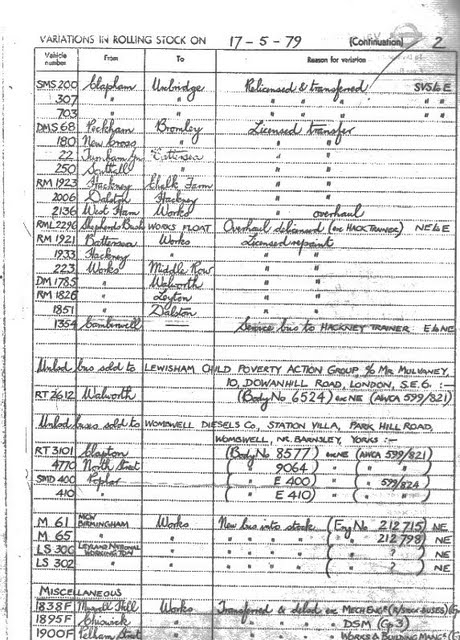 VARIATIONS IN ROLLING STOCK ON 17-5-79 (Continuation) 2
Vehicle number From To Reason for variation
SMS 200 Clapham Uxbridge Relicensed & transferred SVSLE
307 " " " " " " "
703 " " " " " " "
DMS 68 Peckham Bromley Licensed transfer
180 New Cross " " "
22 Turnham Gn Battersea " "
250 Southall " " "
RM 1923 Hackney Chalk Farm " "
2006 Dalston Hackney " "
2136 West Ham Works " overhaul
RML 2296 Shepherds Bush WORKS FLOAT Overhaul delicensed (ex HACK TRAINER) NELE
RM 1921 Battersea Works Licensed repaint
1933 Hackney " " "
223 Works Middle Row " "
DM 1785 " Walworth " "
RM 1826 " Leyton " "
1851 " Dalston " "
1354 Camberwell — Service bus to HACKNEY TRAINER ELNE
Unlcd bus sold to LEWISHAM CHILD POVERTY ACTION GROUP % MR MULVANEY,
10, DOWANHILL ROAD, LONDON, S.E.6. :—
RT 2612 Walworth (Body No 6524) ex NE (AWCA 599/821)
Unlcd buses sold to WOMBWELL DIESELS CO, STATION VILLA, PARK HILL ROAD,
WOMBWELL, NR. BARNSLEY, YORKS :—
RT 3101 Clapton (Body No 8577) ex NE (AWCA 599/821)
4770 North Street ( " 9064) " ( " " )
SMD 400 Poplar ( " E 400) " ( " 599/824)
410 " ( " E 410) " ( " " )
M 61 MCW BIRMINGHAM Works New bus into stock (Eng No 212715) NE
M 65 " " " " " " ( " " 212798) NE
LS 300 LEYLAND NATIONAL WORKINGTON " " " " " ( " " ) NE
LS 302 " " " " " " ( " ? ) NE
MISCELLANEOUS
1838F Muswell Hill Works Transferred & delcd ex MECH ENGR
1895F Chiswick " " " " DSM (Gp 3)
1900F Pelham Street " " " " WORKS & BUILDING MANGR